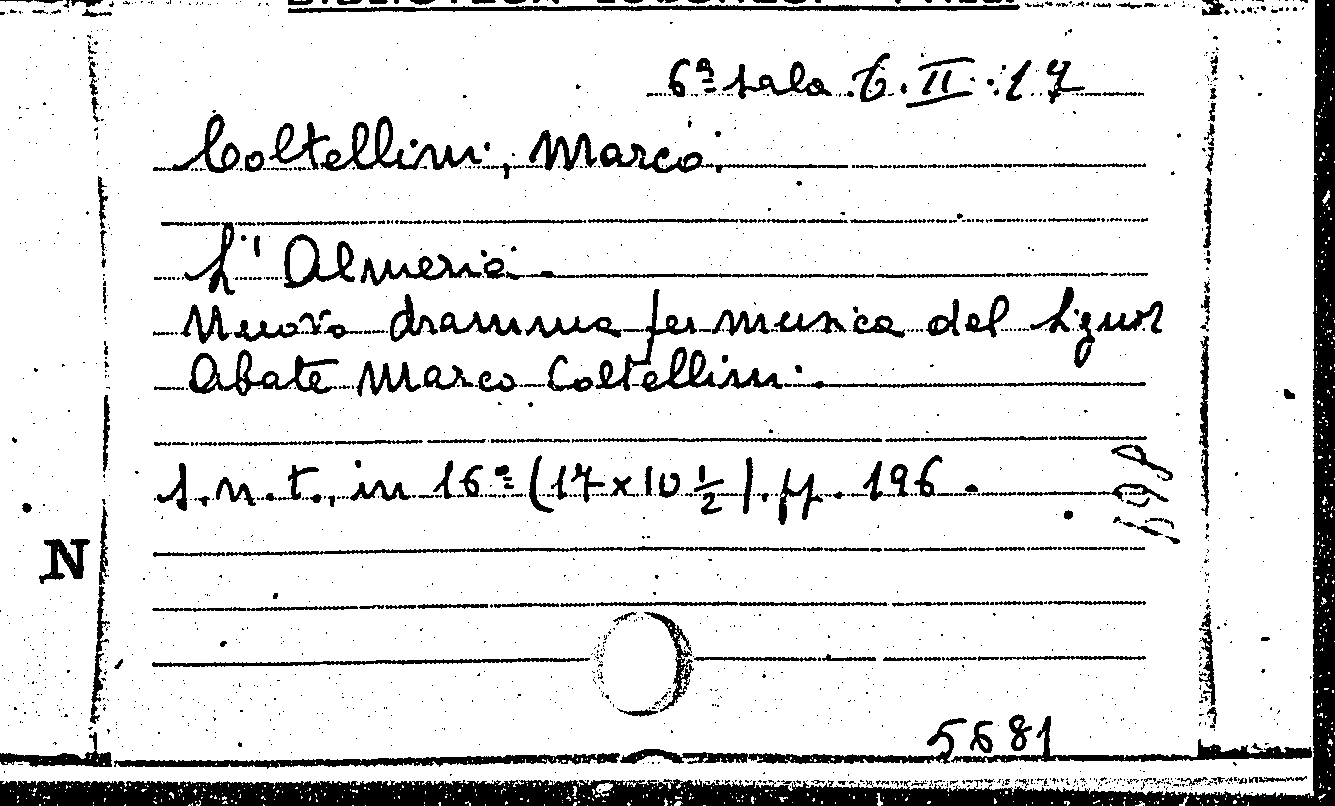 6ª sala 6.II.17
Coltellini, Marco.
L'Almeria.
Nuovo dramma per musica del Signor
Abate Marco Coltellini.
s.n.t., in 16º (17x10 ½). pp. 196.
N
5681